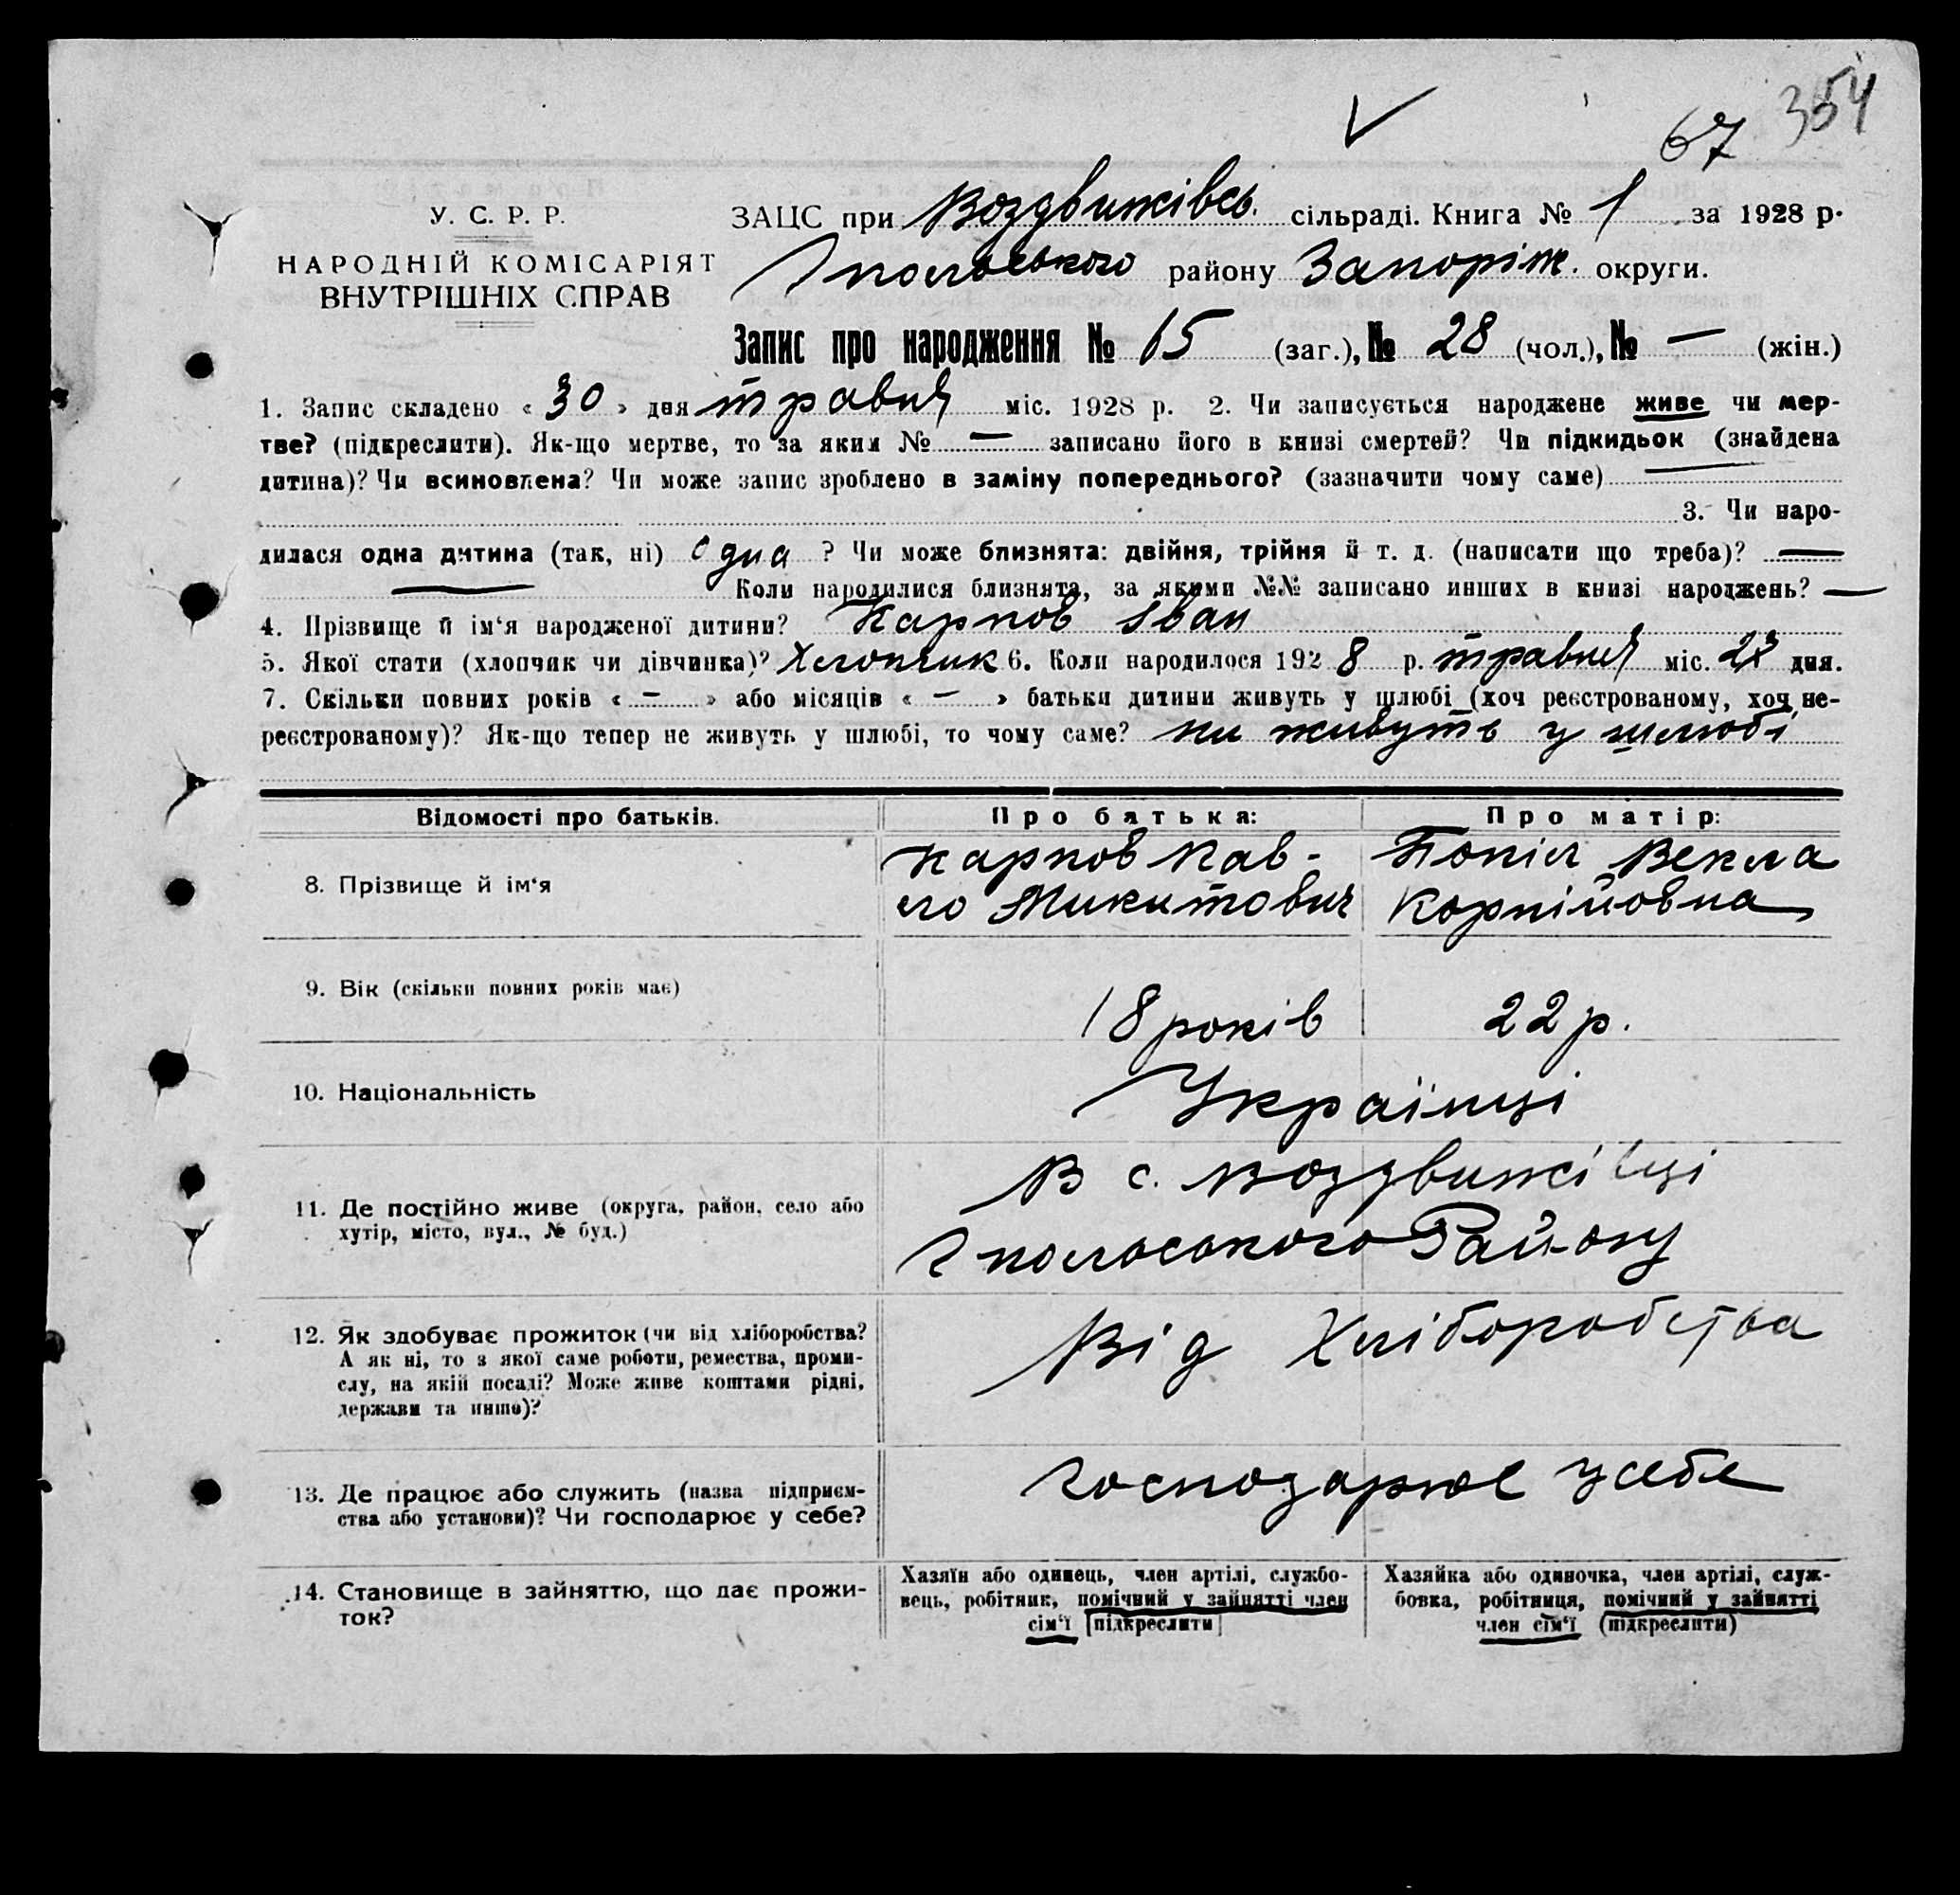 354
67
У. С. Р. Р.
НАРОДНІЙ КОМІСАРІЯТ
ВНУТРІШНІХ СПРАВ
ЗАЦС при Воздвижівсь. сільраді. Книга № 1 за 1928 р.
Гпольського району Запоріж. округи.
Запис про народження № 65 (заг.), № 28 (чол.), № — (жін.)
1. Запис складено « 30 » дня травня міс. 1928 р. 2. Чи записується народжене живе чи мер-
тве? (підкреслити). Як-що мертве, то за яким № — записано його в книзі смертей? Чи підкидьок (знайдена
дитина)? Чи всиновлена? Чи може запис зроблено в заміну попереднього? (зазначити чому саме) —
3. Чи наро-
дилася одна дитина (так, ні) одна ? Чи може близнята: двійня, трійня й т. д. (написати що треба)? —
— Коли народилися близнята, за якими №№ записано инших в книзі народжень? —
4. Прізвище й ім‘я народженої дитини? Карпов Іван
5. Якої стати (хлопчик чи дівчинка)? Хлопчик 6. Коли народилося 1928 р. травня міс. дня.
7. Скільки повних років « – » або місяців « – » батьки дитини живуть у шлюбі (хоч реєстрованому, хоч не-
реєстрованому)? Як-що тепер не живуть у шлюбі, то чому саме? ни живуть у шлюбі
Відомості про батьків. Про батька: Про матір:
8. Прізвище й ім‘я
Карпов Пав- Попіл Векла
ло Микитович Корпійовна
9. Вік (скільки повних років має) 18 років 22 р.
10. Національність Українці
11. Де постійно живе (округа, район, село або
хутір, місто, вул., № буд.)
В с. Воздвижівці
Гпольського Району
12. Як здобуває прожиток (чи від хліборобства?
А як ні, то з якої саме роботи, ремества, проми-
слу, на якій посаді? Може живе коштами рідні,
держави та инше)?
Від Хліборобства
13. Де працює або служить (назва підприєм-
ства або установи)? Чи господарює у себе?
Господарює у себе
14. Становище в зайняттю, що дає прожи-
ток?
Хазяїн або одинець, член артілі, службо-
вець, робітник, помічний у зайнятті член
сім‘ї [підкреслити]
Хазяйка або одиночка, член артілі, служ-
бовка, робітниця, помічний у зайнятті
член сім‘ї (підкреслити)